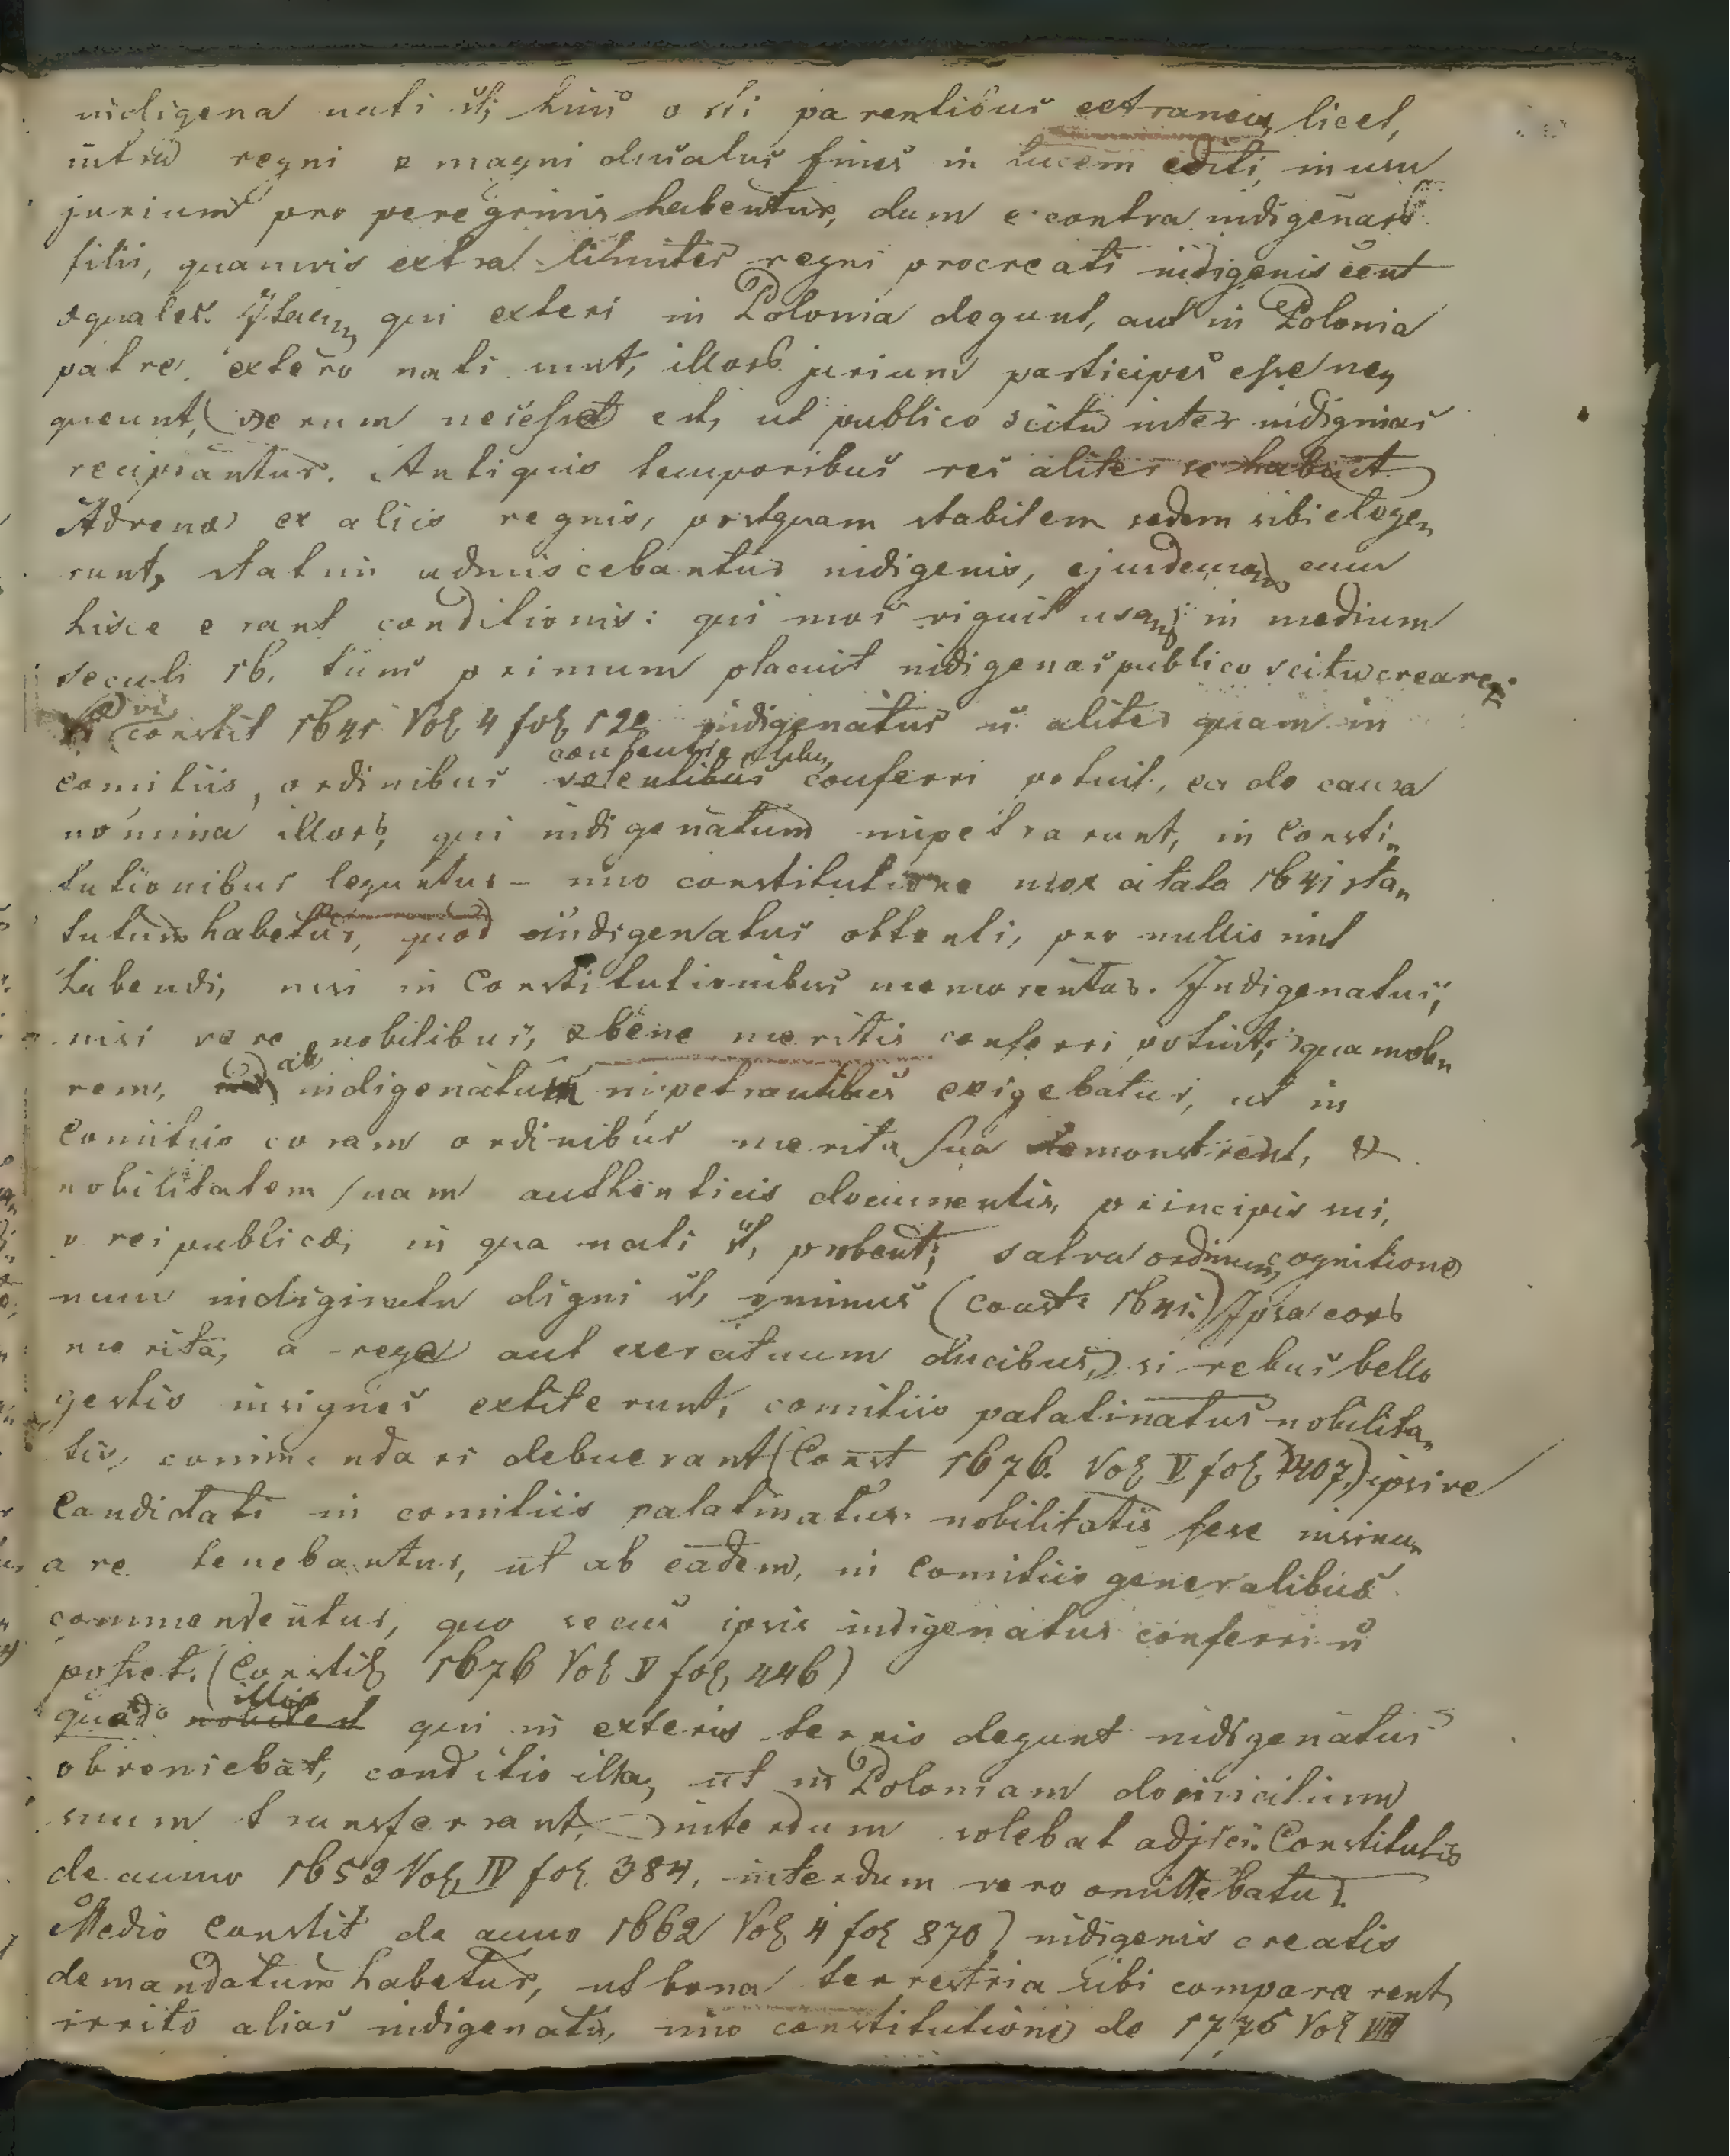 indigena nati st; hinc orti parentibus extraneis, licet,
intra regni & magni ducatus fines in lucem editi, in usu
jurium pro peregrinis habentur, dum e contra indigenarb
filii, quamvis extra limites regni procreati indigenis cent
aquales. Itaq, qui exteri in Polonia degunt, aut in Polonia
patre extero nati sunt, illorb jurium participes esse ne,,
queunt, verum necesse est, ut publico scitu inter indiginas
recipiantur. Antiquis temporibus res aliter se habuit
Advenæ ex aliis regnis, postquam stabilem sedem sibi elege,,
runt, statim admiscebantur indigenis, ejusdemq, cum
hisce erant conditionis: qui mos viguit usq, in medium
seculi 16. tum primum placuit indigenas publico scitu creare.
vi Constit 1641 Vol 4 fol 12 indigenatus n aliter quam in
consentientibus
comitiis, ordinibus volentibus conferri potuit, ea de causa
nomina illorb, qui indigenatum impetrarunt, in Consti,,
tutionibus leguntur - imo constitutione mox citata 1641 sta,,
tutum habetur, quod indigenatus obtenti, pro nullis sint
habendi, nisi in Constitutionibus memorentur. Indigenatus,
nisi vere nobilibus, & bene meritis conferri potuit; quamob,,
rem, ab indigenatum impetrantibus exigebatur, ut in
Comitiis coram ordinibus merita sua demonstrent, &
nobilitatem suam authenticis documentis, principis sui,
v reipublicæ, in qua nati st, probent; salva ordinum, cognitione
num indiginatu digni st, minus (Const: 1641.) Ipsa eorb
merita, a rege aut exercituum ducibus, si rebus bello
gestis insignes extiterunt, comitiis palatinatus nobilita,,
tis, commendari debuerant (Const 1676. Vol V fol 407.) ipsive
Candidati in comitiis palatinatus nobilitatis sese insinu,,
are tenebantur, ut ab eadem, in Comitiis generalibus
commendentur, quo secus ipsis indigenatus conferri n
posset. (Constit 1676 Vol V fol, 446)
illis
quado nobilest qui in exteris terris degunt indigenatus
obveniebat, conditio illa, ut in Poloniam domicilium
suum transferrant, interdum solebat adjici. Constitutio
de anno 1652 Vol, IV fol 384, interdum vero omittebatur.
Medio Constit de anno 1662 Vol 4 fol 870) indigenis creatis
demandatum habetur, ut bona terrestria sibi compararent,
irrito alias indigenatu, imo constitutione de 1775 Vol VIII